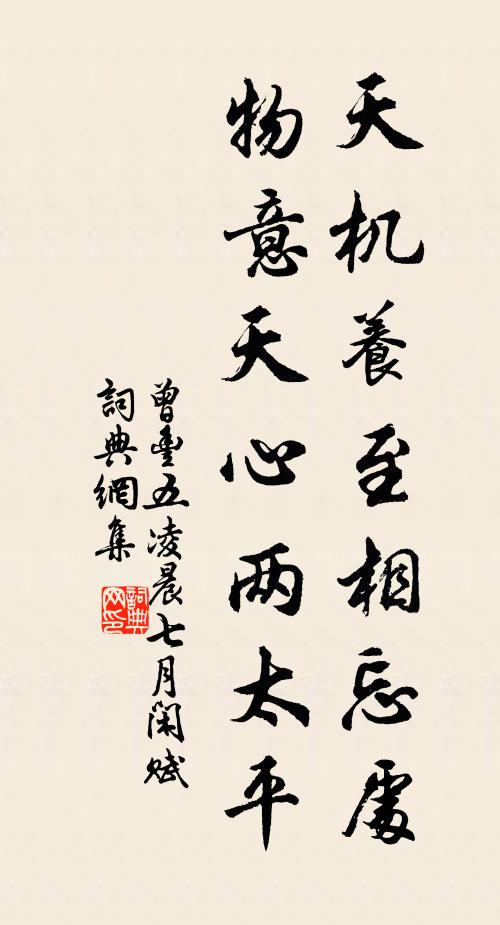 天机養至相忘處
物意天心两太平
曾豊五凌晨七月閑賦
詞典網集
詞典网印